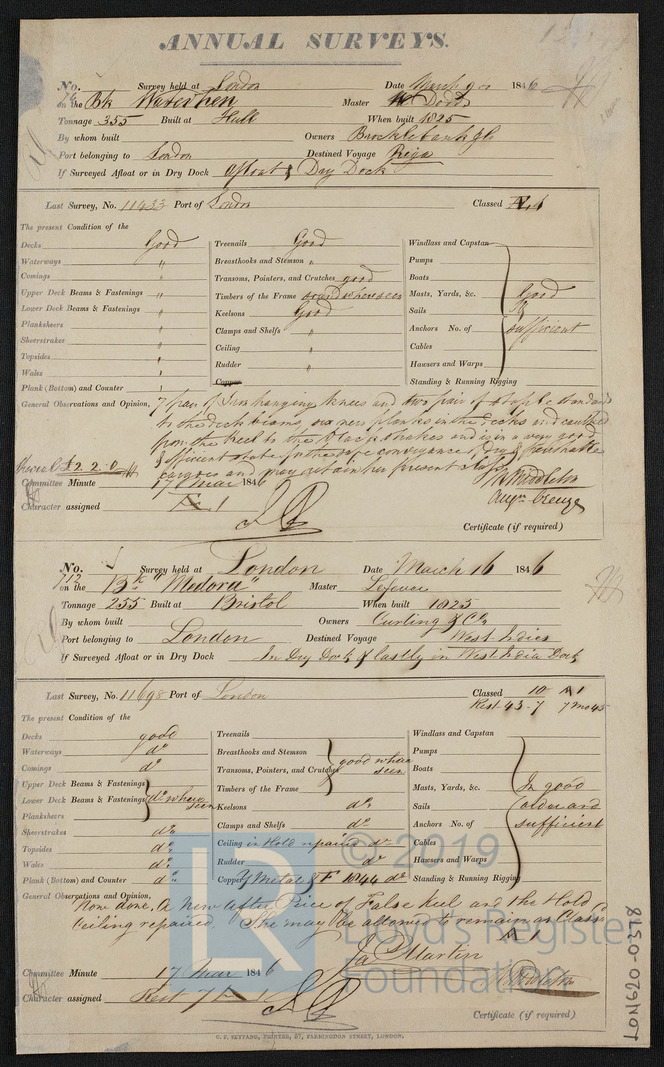 ANNUAL SURVEYS.
No. 76 Survey held at London Date March 9 1846
on the Bk Waterhen Master W Dodds
Tonnage 355 Built at Hull When built 1825
By whom built Owners Brocklebank & Co
Port belonging to London Destined Voyage Riga
If Surveyed Afloat or in Dry Dock afloat & Dry Dock
Last Survey, No. 11433 Port of London Classed
The present Condition of the
Decks Good
Waterways "
Comings "
Upper Deck Beams & Fastenings "
Lower Deck Beams & Fastenings "
Planksheers "
Sheerstrakes "
Topsides "
Wales "
Plank (Bottom) and Counter "
Treenails Good
Breasthooks and Stemson "
Transoms, Pointers, and Crutches good
Timbers of the Frame sound where seen
Keelsons Good
Clamps and Shelfs "
Ceiling "
Rudder "
Copper
Windlass and Capstan
Pumps
Boats
Masts, Yards, &c. Good
Sails &
Anchors No. of sufficient
Cables
Hawsers and Warps
Standing & Running Rigging
General Observations and Opinion, 7 pair of Iron hanging knees and two pair of staple standards
to the deck beams, six new planks in the decks and caulked
from the Keel to the Black strakes and is in a very good
& efficient state for the safe conveyance of dry & perishable
cargoes and may retain her present class
£2.2.0
W Middleton
Augn Creuze
Committee Minute 17 Mar 1846
Character assigned Æ 1
Certificate (if required)
No. 712 Survey held at London Date March 16 1846
on the Bk "Medora" Master Lefever
Tonnage 255 Built at Bristol When built 1825
By whom built Owners Curling & Co.
Port belonging to London Destined Voyage West Indies
If Surveyed Afloat or in Dry Dock In Dry Dock & lastly in West India Dock
Last Survey, No. 11698 Port of London Classed 10 A1
Rest 43-7 7 mo 45
The present Condition of the
Decks good
Waterways do
Comings do
Upper Deck Beams & Fastenings
Lower Deck Beams & Fastenings do where seen
Planksheers
Sheerstrakes do
Topsides do
Wales do
Plank (Bottom) and Counter do
Treenails
Breasthooks and Stemson good where
Transoms, Pointers, and Crutches seen
Timbers of the Frame
Keelsons do
Clamps and Shelfs do
Ceiling in Hold repaired do
Rudder do
Copper Y Metal & F 1844 do
Windlass and Capstan
Pumps
Boats
Masts, Yards, &c. In good
Sails order and
Anchors No. of sufficient
Cables
Hawsers and Warps
Standing & Running Rigging
General Observations and Opinion, Now done, A new after Piece of False keel and the Hold
Ceiling repaired. She may be allowed to remain as Class
A 1
Jas Martin
Middleton
Committee Minute 17 Mar 1846
Character assigned Rest 7 A 1
Certificate (if required)
C. F. SEYFANG, PRINTER, 57, FARRINGDON STREET, LONDON.
LON620-0378
© 2019
Lloyd's Register
Foundation
LR